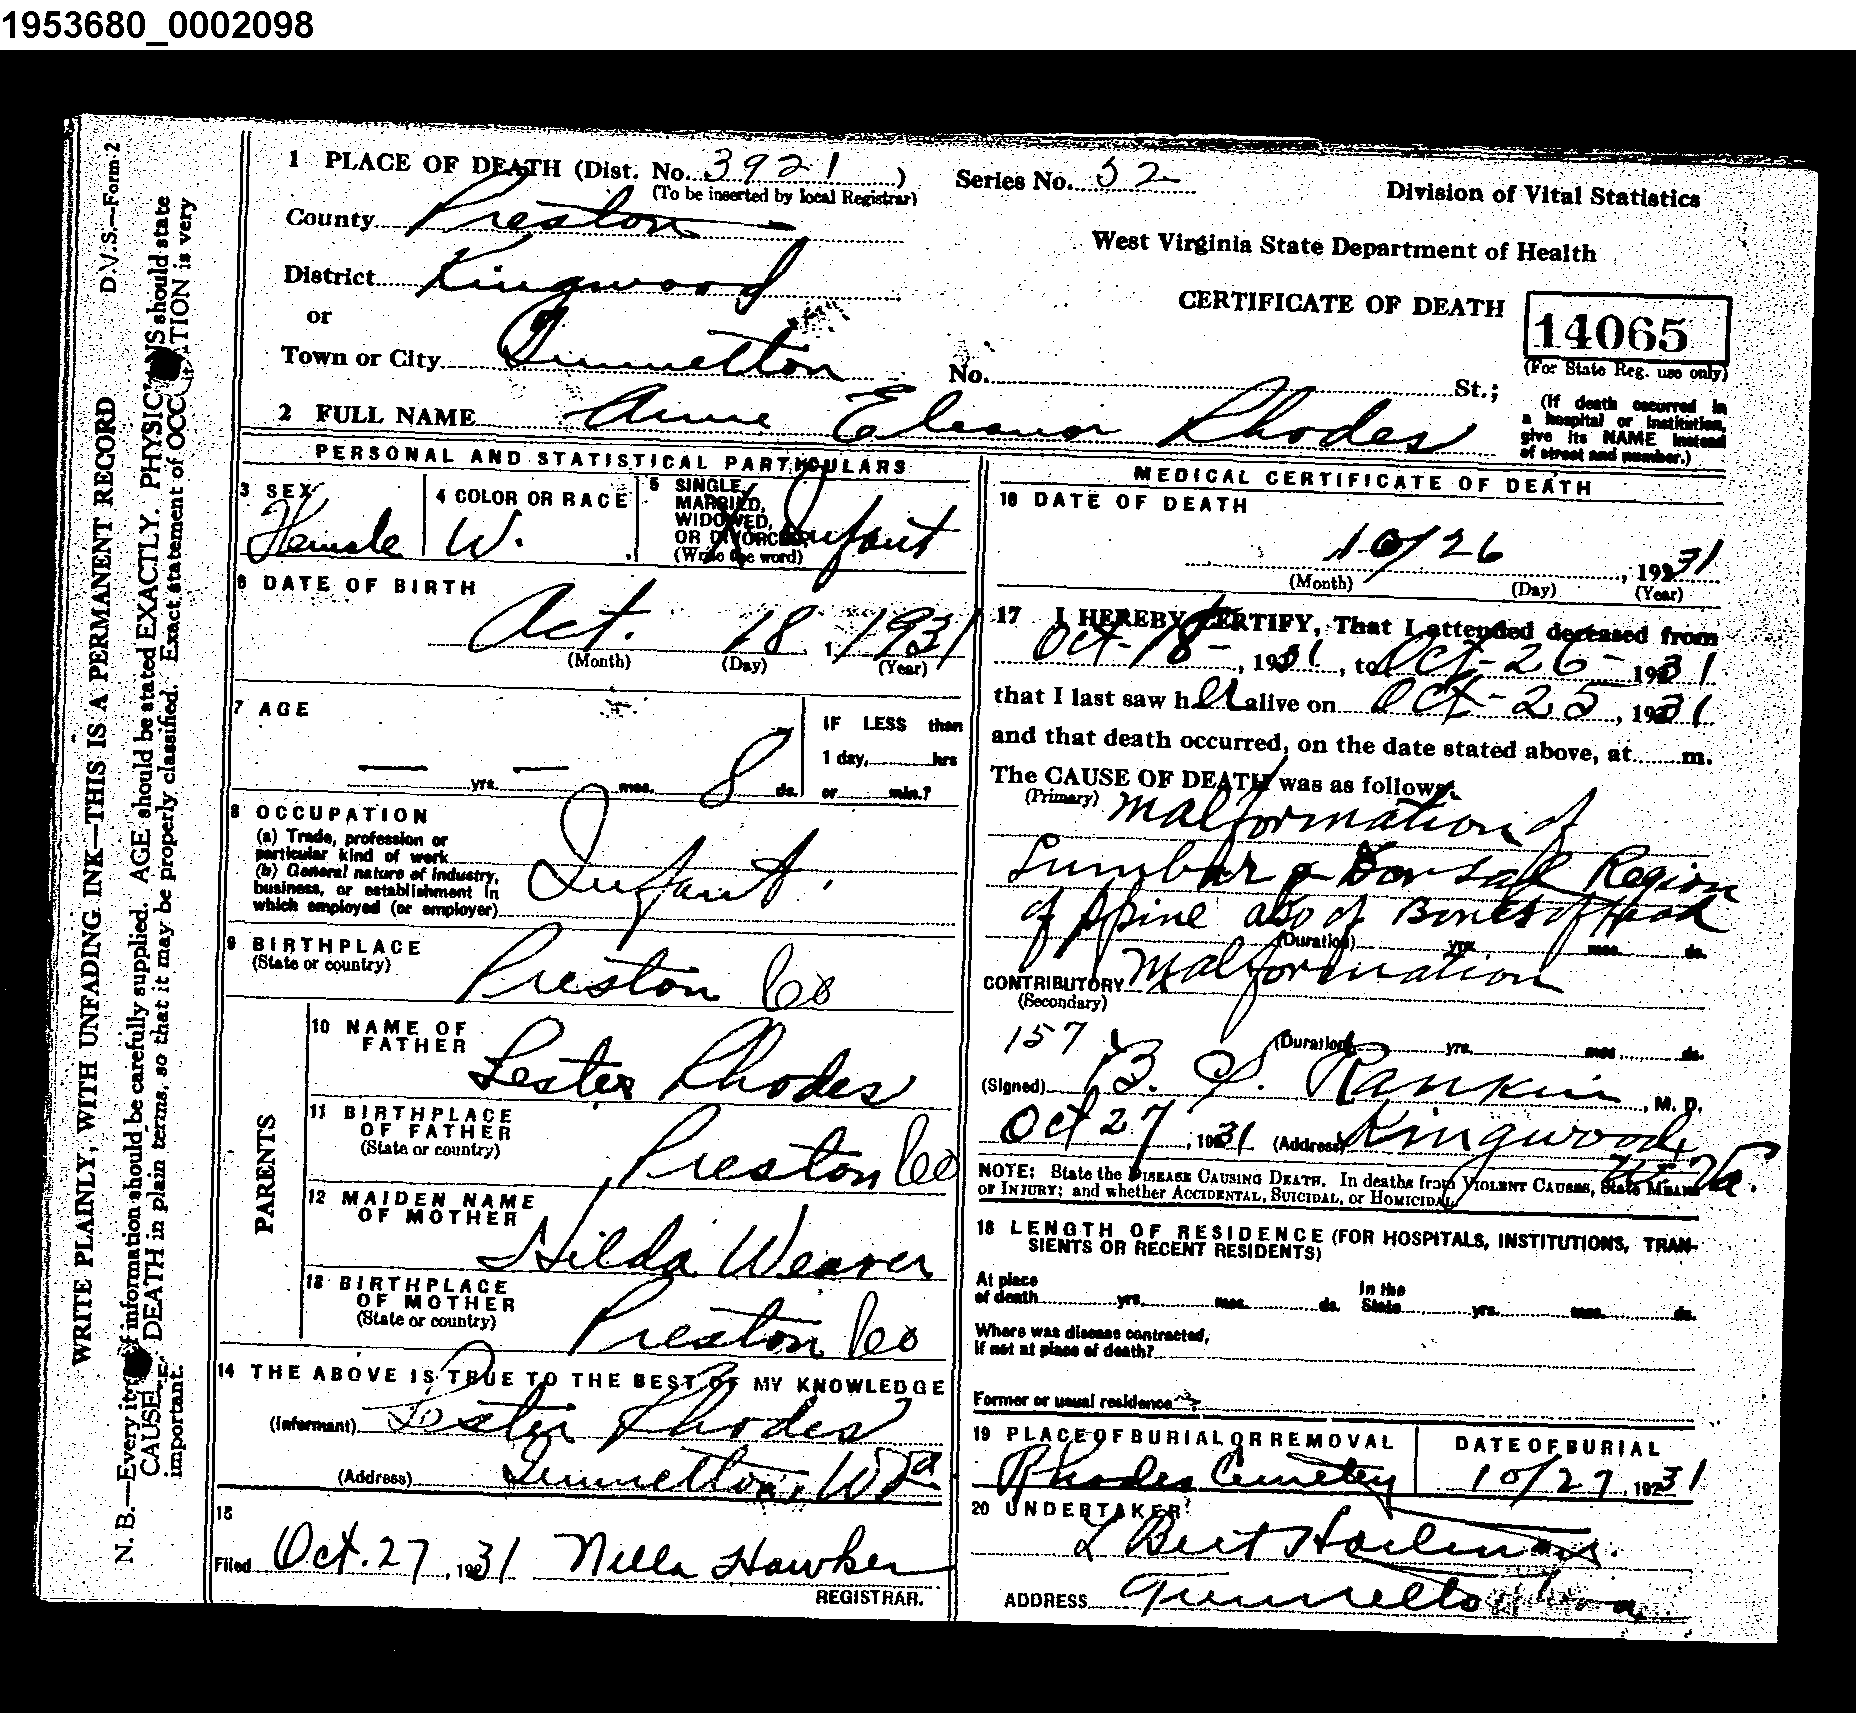 1953680_0002098
D.V.S.—Form 2
WRITE PLAINLY, WITH UNFADING INK—THIS IS A PERMANENT RECORD
N. B.—Every item of information should be carefully supplied. AGE should be stated EXACTLY. PHYSICIANS should state
CAUSE OF DEATH in plain terms, so that it may be properly classified. Exact statement of OCCUPATION is very
important.
1 PLACE OF DEATH (Dist. No. 3921)
(To be inserted by local Registrar)
Series No. 52
Division of Vital Statistics
County Preston
West Virginia State Department of Health
District Kingwood
CERTIFICATE OF DEATH
14065
(For State Reg. use only)
or
Town or City Tunnelton
No. St.;
(If death occurred in
a hospital or institution,
give its NAME instead
of street and number.)
2 FULL NAME Anne Eleanor Rhodes
PERSONAL AND STATISTICAL PARTICULARS
3 SEX Female
4 COLOR OR RACE W.
5 SINGLE,
MARRIED,
WIDOWED,
OR DIVORCED
(Write the word) Infant
6 DATE OF BIRTH
Oct. 18, 1931
(Month) (Day) (Year)
7 AGE
— yrs. — mos. 8 ds.
IF LESS than
1 day, hrs
or min.?
8 OCCUPATION
(a) Trade, profession or
particular kind of work
(b) General nature of industry,
business, or establishment in
which employed (or employer)
Infant.
9 BIRTHPLACE
(State or country) Preston Co
PARENTS
10 NAME OF
FATHER Lester Rhodes
11 BIRTHPLACE
OF FATHER
(State or country) Preston Co
12 MAIDEN NAME
OF MOTHER
Hilda Weaver
13 BIRTHPLACE
OF MOTHER
(State or country) Preston Co
14 THE ABOVE IS TRUE TO THE BEST OF MY KNOWLEDGE
(Informant) Lester Rhodes
(Address) Tunnelton, W Va
15
Filed Oct. 27, 1931 Nella Hawker
REGISTRAR.
MEDICAL CERTIFICATE OF DEATH
16 DATE OF DEATH
10/26, 1931
(Month) (Day) (Year)
17 I HEREBY CERTIFY, That I attended deceased from
Oct-18-, 1931, to Oct-26- 1931
that I last saw her alive on Oct-25, 1931
and that death occurred, on the date stated above, at m.
The CAUSE OF DEATH was as follows:
(Primary) Malformation of
Lumbar & Dorsal Region
of spine also of Bones of Head
(Duration) yrs. mos. ds.
CONTRIBUTORY Malformation
(Secondary)
157 (Duration) yrs. mos. ds.
(Signed) B. Rankin, M. D.
Oct 27, 1931 (Address) Kingwood,
W. Va.
NOTE: State the DISEASE CAUSING DEATH. In deaths from VIOLENT CAUSES, state MEANS
OF INJURY; and whether ACCIDENTAL, SUICIDAL, or HOMICIDAL
18 LENGTH OF RESIDENCE (FOR HOSPITALS, INSTITUTIONS, TRAN-
SIENTS OR RECENT RESIDENTS)
At place
of death yrs. mos. ds.
In the
State yrs. mos. ds.
Where was disease contracted,
if not at place of death?
Former or usual residence
19 PLACE OF BURIAL OR REMOVAL
Rhodes Cemetery
DATE OF BURIAL
10/27, 1931
20 UNDERTAKER
L Bert
ADDRESS Tunnelton